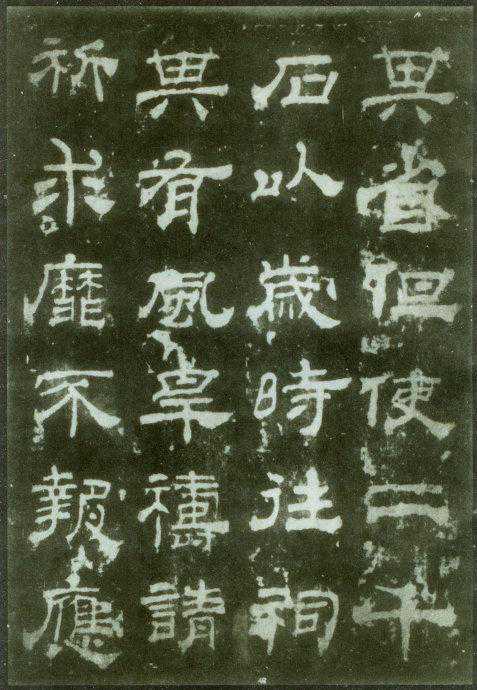 其省但使二千
石以歲時往祠
其有風旱禱請
祈求靡不報應